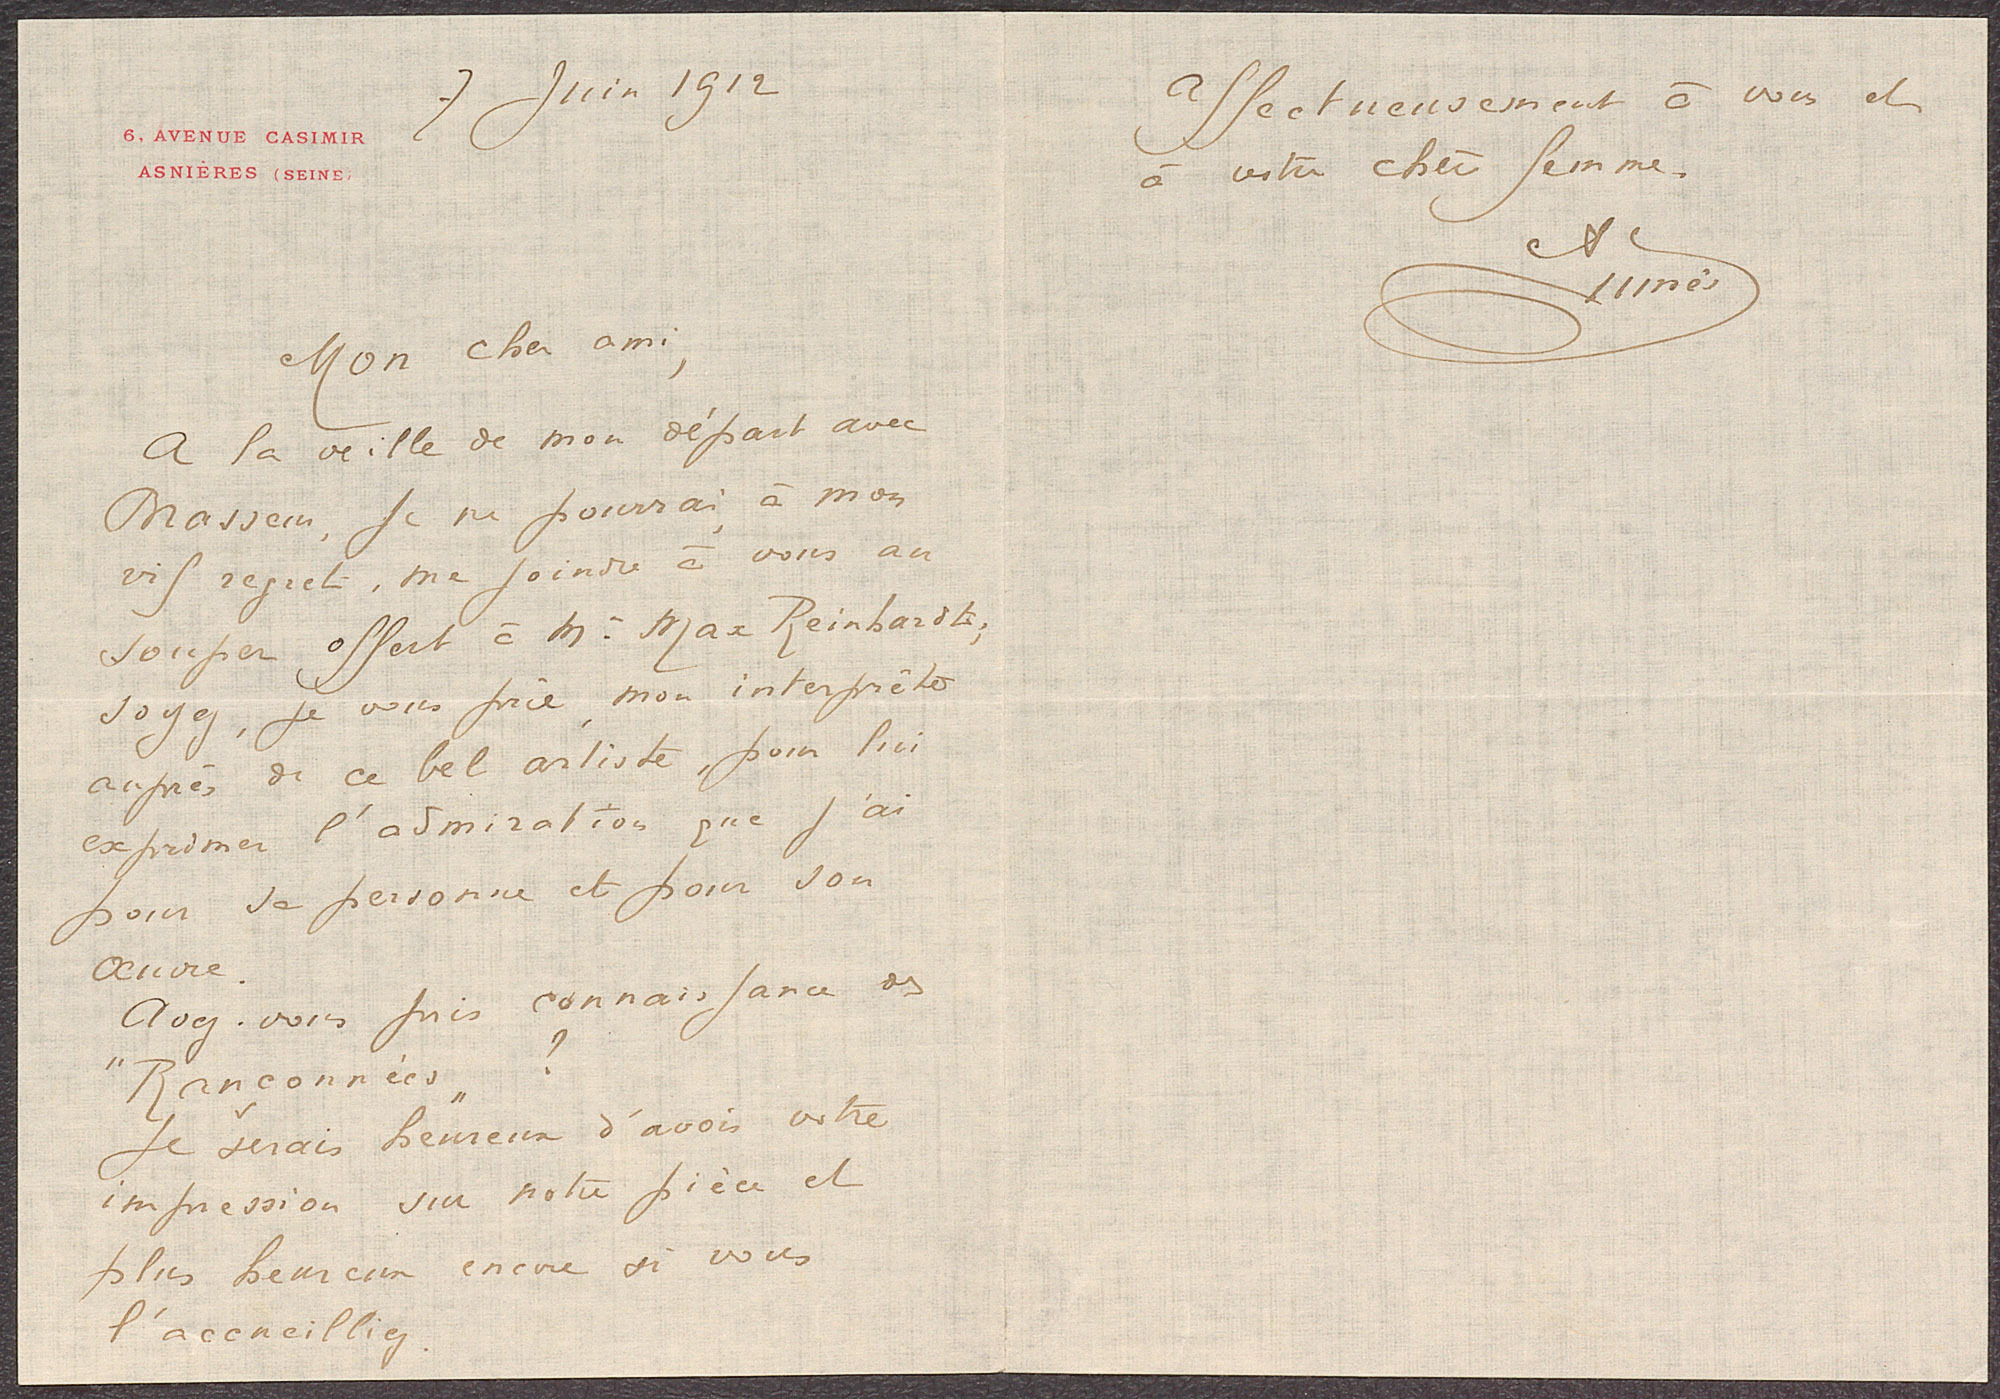 7 Juin 1912
6, AVENUE CASIMIR
ASNIÈRES (SEINE)
Mon cher ami,
A la veille de mon départ avec
Brasseur, je ne pourrai, à mon
vif regret, me joindre à vous au
souper offert à Mr Max Reinhardt;
soyez, je vous prie, mon interprète
auprès de ce bel artiste, pour lui
exprimer l'admiration que j'ai
pour sa personne et pour son
œuvre.
Avez-vous pris connaissance des
"Rançonnées" ?
Je serais heureux d'avoir votre
impression sur notre pièce et
plus heureux encore si vous
l'accueilliez.
Affectueusement à vous et
à votre chère femme.